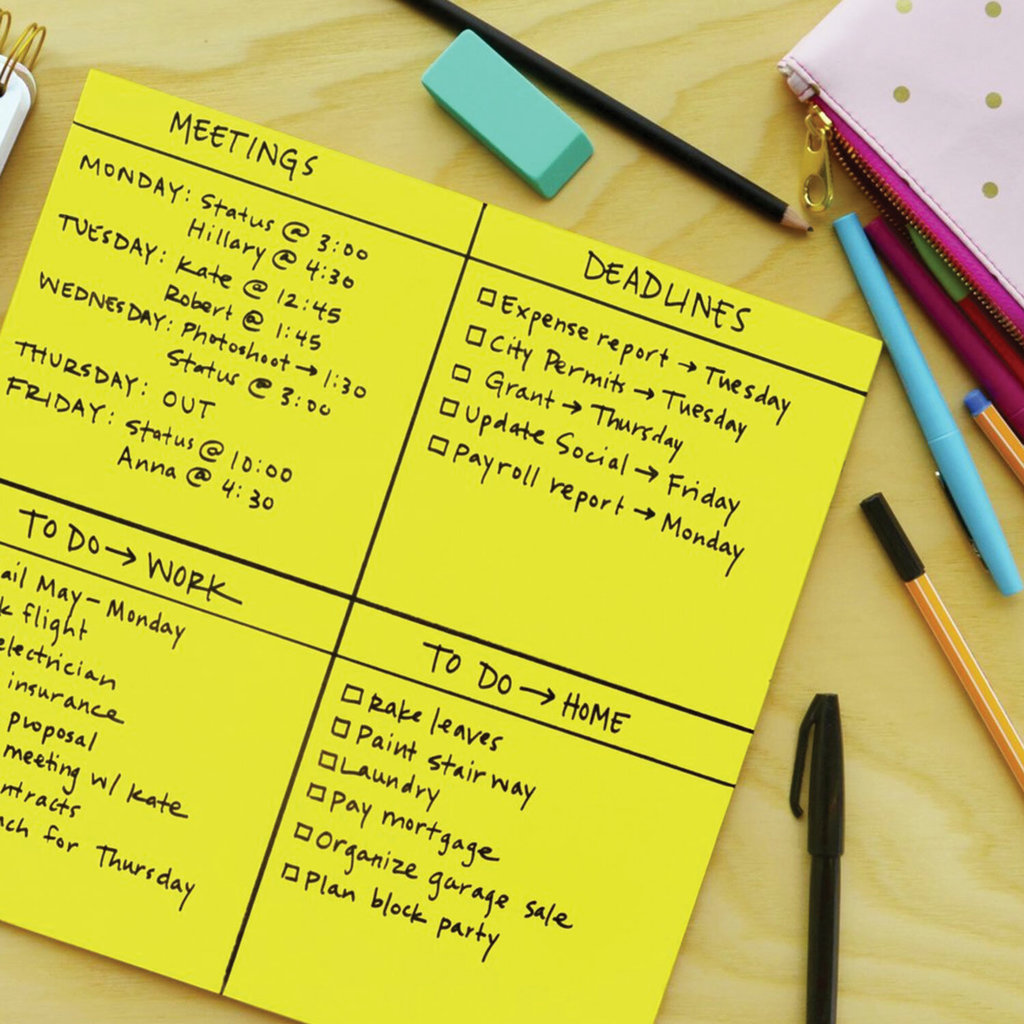 MEETINGS
MONDAY: Status @ 3:00
Hillary @ 4:30
TUESDAY: Kate @ 12:45
Robert @ 1:45
WEDNESDAY: Photoshoot → 1:30
Status @ 3:00
THURSDAY: OUT
FRIDAY: Status @ 10:00
Anna @ 4:30
DEADLINES
Expense report → Tuesday
City Permits → Tuesday
Grant → Thursday
Update Social → Friday
Payroll report → Monday
TO DO → WORK
May - Monday
flight
electrician
insurance
proposal
meeting w/ Kate
for Thursday
TO DO → HOME
Rake leaves
Paint stairway
Laundry
Pay mortgage
Organize garage sale
Plan block party